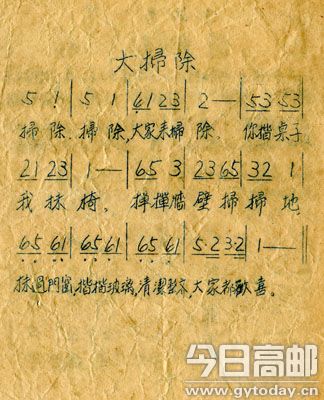 大掃除
5 1 | 5 1 | 61 23 | 2 — | 53 53
掃除.掃除,大家来掃除.你揩桌子
21 23 | 1 — | 65 3 | 23 65 | 32 1
我抹椅,撣撣墻壁掃掃地
65 61 | 65 61 | 65 61 | 5·2 3·2 | 1 — |
抹門窗,揩揩玻璃,清潔整齐,大家都歡喜。
今日高邮
www.gytoday.cn